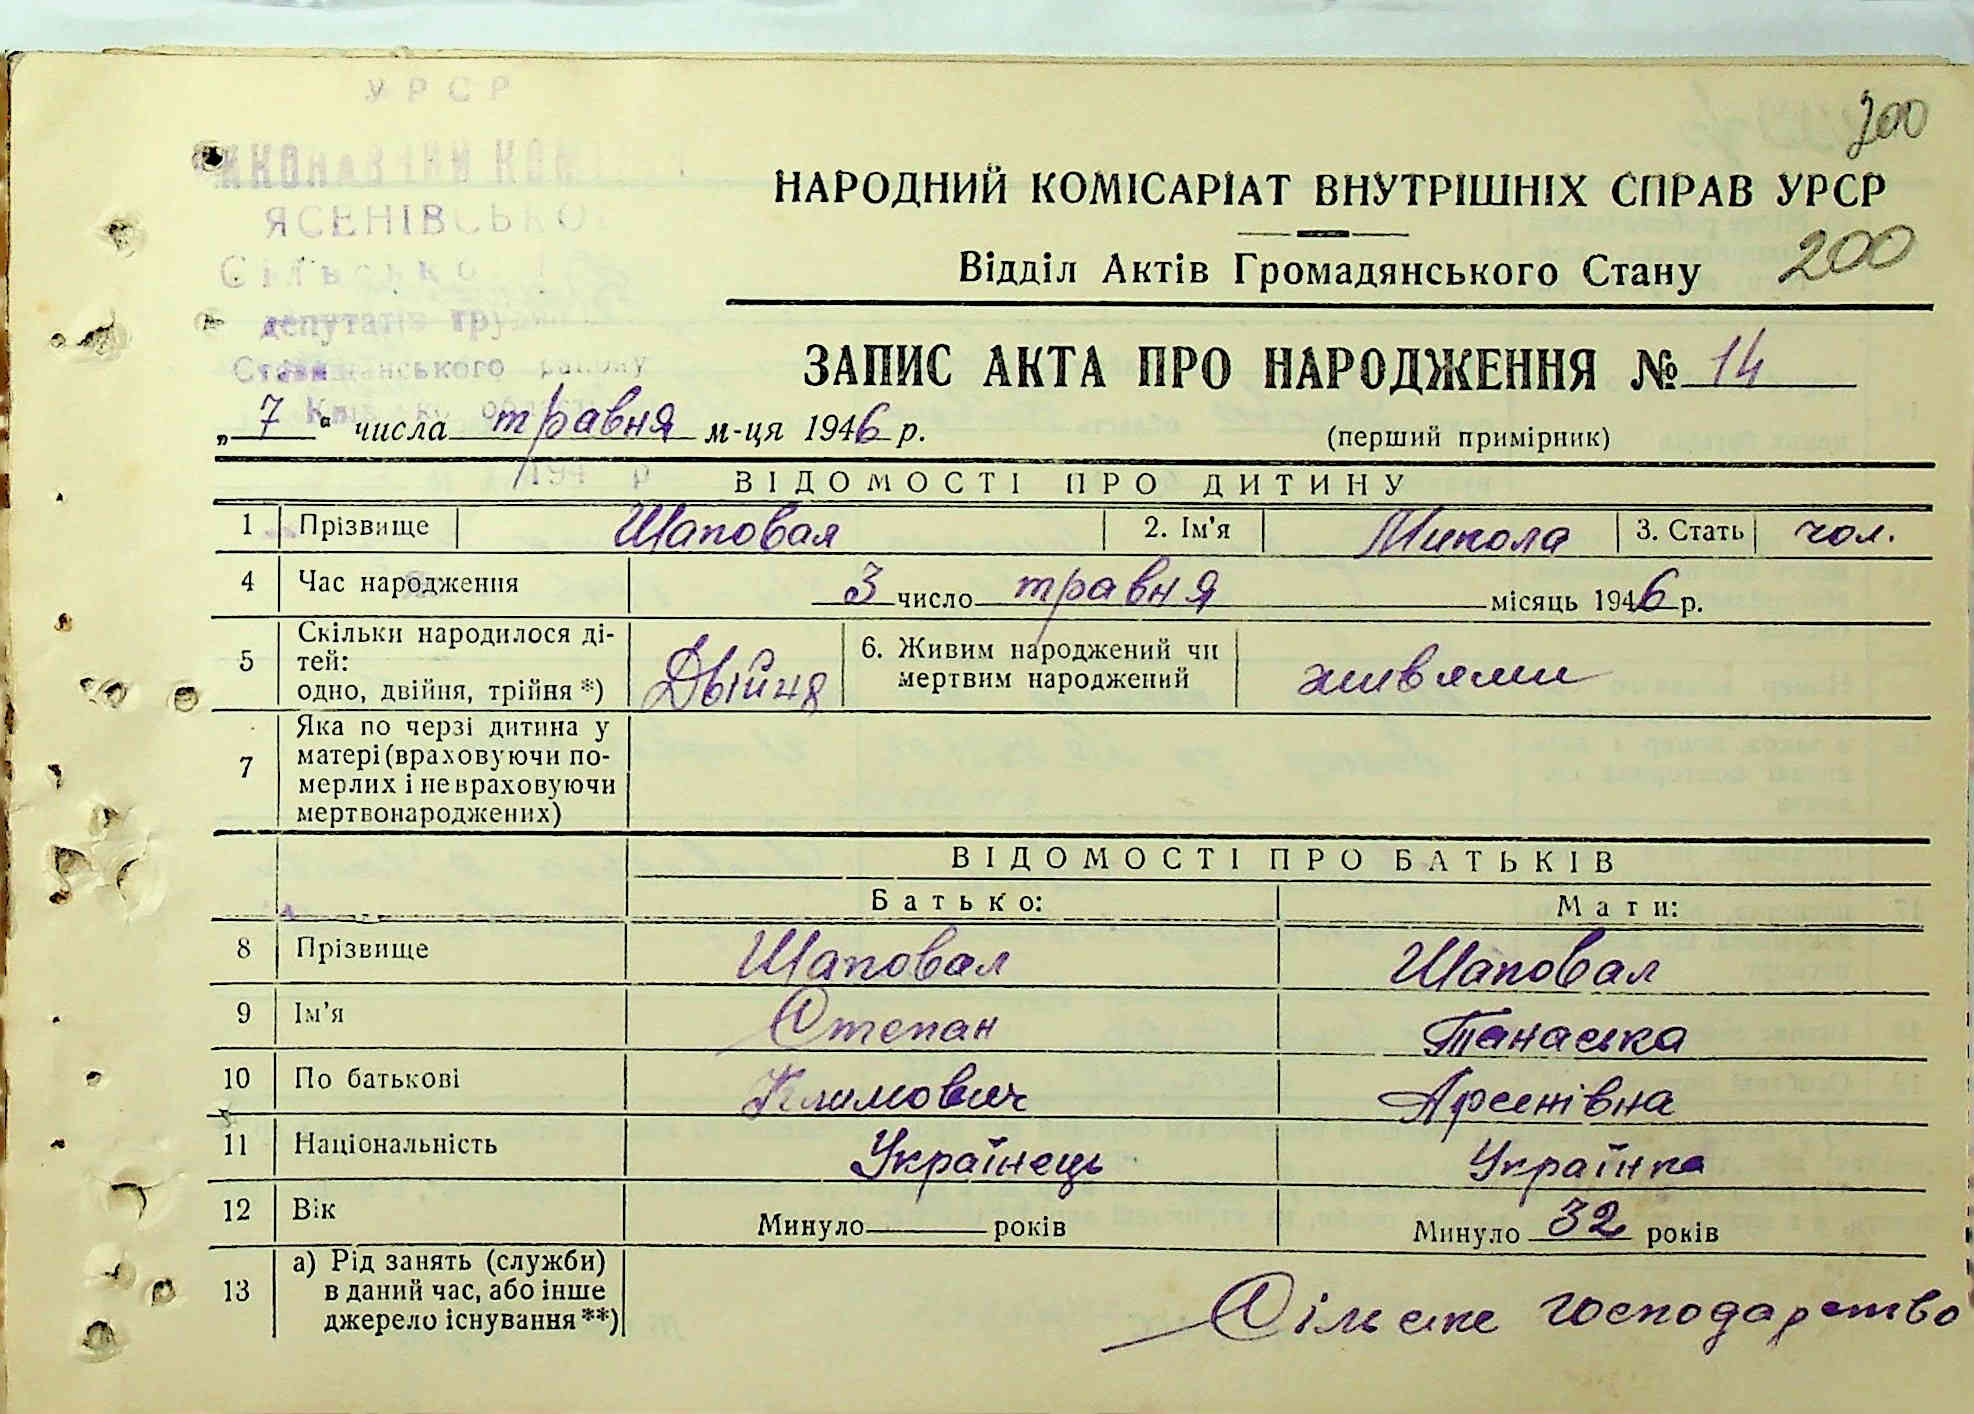 УРСР
200
ЯСЕНІВСЬКО
НАРОДНИЙ КОМІСАРІАТ ВНУТРІШНІХ СПРАВ УРСР
200
Відділ Актів Громадянського Стану
депутатів тру
ського району
ЗАПИС АКТА ПРО НАРОДЖЕННЯ № 14
„7“ числа травня м-ця 1946 р.
(перший примірник)
194 р
ВІДОМОСТІ ПРО ДИТИНУ
1 Прізвище Шаповал 2. Ім'я Микола 3. Стать чол.
4 Час народження 3 число травня місяць 1946 р.
5 Скільки народилося ді-
тей:
одно, двійня, трійня *) Двійня 6. Живим народжений чи
мертвим народжений живями
7 Яка по черзі дитина у
матері (враховуючи по-
мерлих і не враховуючи
мертвонароджених)
ВІДОМОСТІ ПРО БАТЬКІВ
Батько: Мати:
8 Прізвище Шаповал Шаповал
9 Ім'я Степан Танаська
10 По батькові Климович Арсенівна
11 Національність Українець Українка
12 Вік Минуло років Минуло 32 років
13 а) Рід занять (служби)
в даний час, або інше
джерело існування **) Сільске господарство